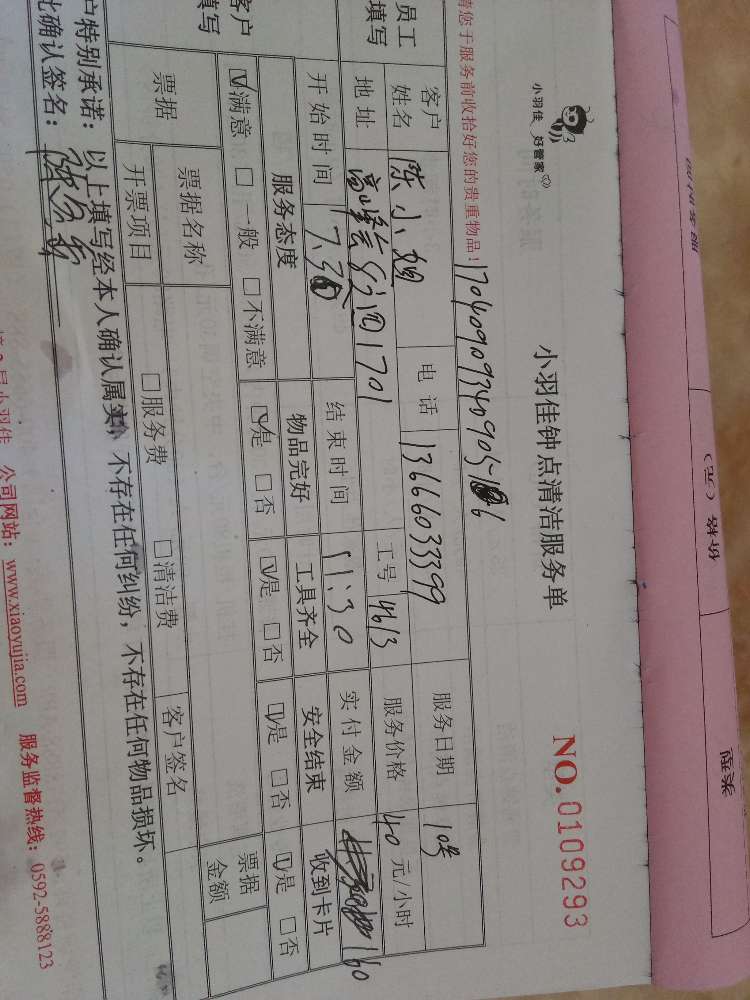 小羽佳 好管家
小羽佳钟点清洁服务单
NO.0109293
请您于服务前收拾好您的贵重物品！
员工填写
客户姓名 陈小姐 电话 13666033399 服务日期 10号
地址 1701 工号 4613 服务价格 40 元/小时
开始时间 7.30 结束时间 11:30 实付金额 160
客户填写
服务态度 物品完好 工具齐全 安全结束 收到卡片
☑满意 □一般 □不满意 ☑是 □否 ☑是 □否 ☑是 □否 ☑是 □否
票据 票据名称 票据金额
开票项目 □服务费 □清洁费 客户签名
户特别承诺：以上填写经本人确认属实，不存在任何纠纷，不存在任何物品损坏。
此确认签名：
公司网站：www.xiaoyujia.com 服务监督热线：0592-5888123